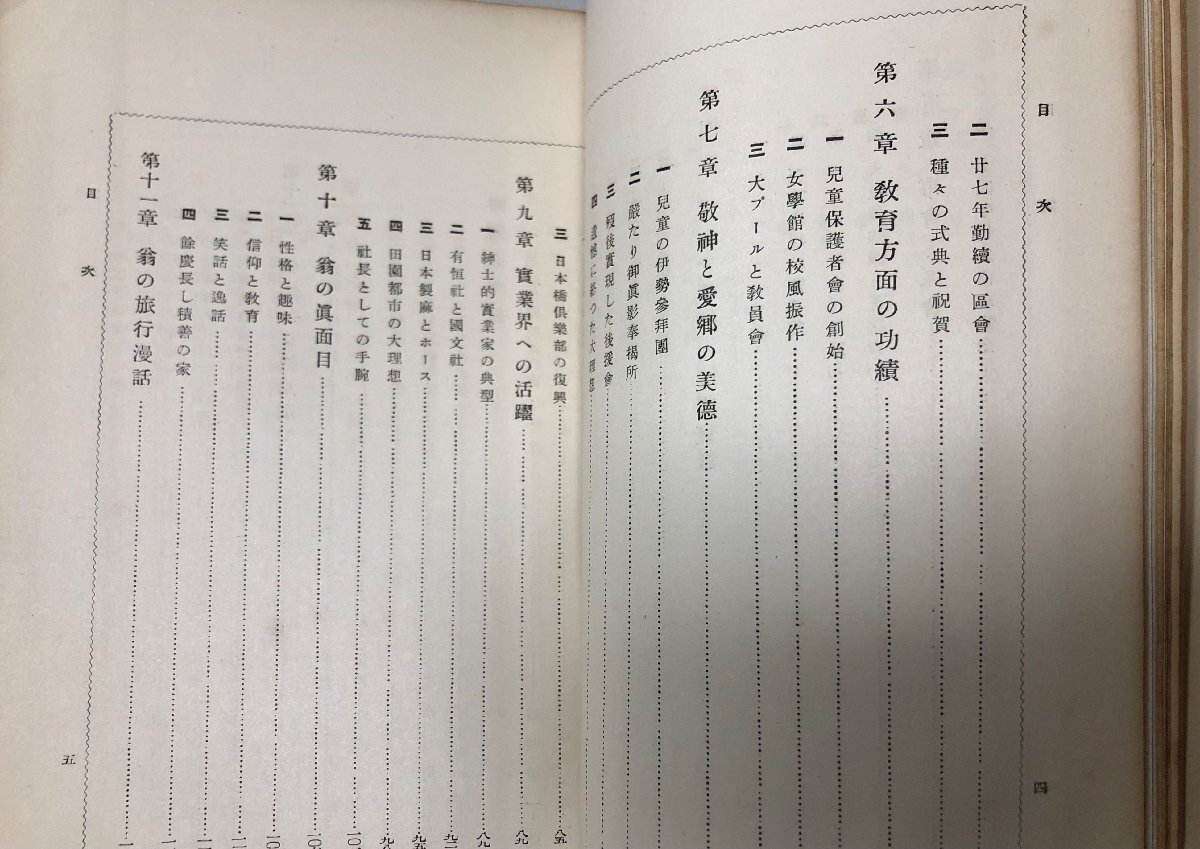 目次
二 廿七年勤續の區會
三 種々の式典と祝賀
第六章 教育方面の功績
一 兒童保護者會の創始
二 女學館の校風振作
三 大プールと教員會
第七章 敬神と愛郷の美德
一 兒童の伊勢參拜團
二 嚴たり御眞影奉揭所
三 歿後實現した後援會
四 遺憾に終つた大理想
四
三 日本橋倶樂部の復興 八五
第九章 實業界への活躍 八九
一 紳士的實業家の典型 八九
二 有恒社と國文社 九二
三 日本製麻とホース 九五
四 田園都市の大理想
五 社長としての手腕
第十章 翁の眞面目
一 性格と趣味
二 信仰と教育
三 笑話と逸話
四 餘慶長し積善の家
第十一章 翁の旅行漫話
目次
五